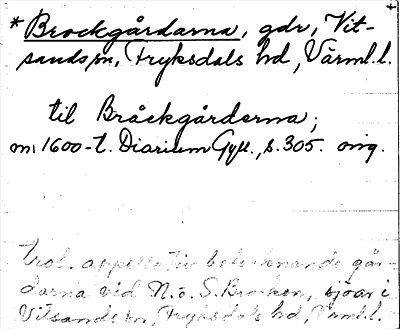 * Brockgårdarna, gdr, Vit-
sands sn, Fryksdals hd, Värml. l.
til Bråckgårderna;
m 1600-t. Diarium Gyll., s. 305. orig.
trol. appellativ betecknande går-
darna vid N. o. S. Brocken, sjöar i
Vitsands sn, Fryksdals hd, Vrml. l.